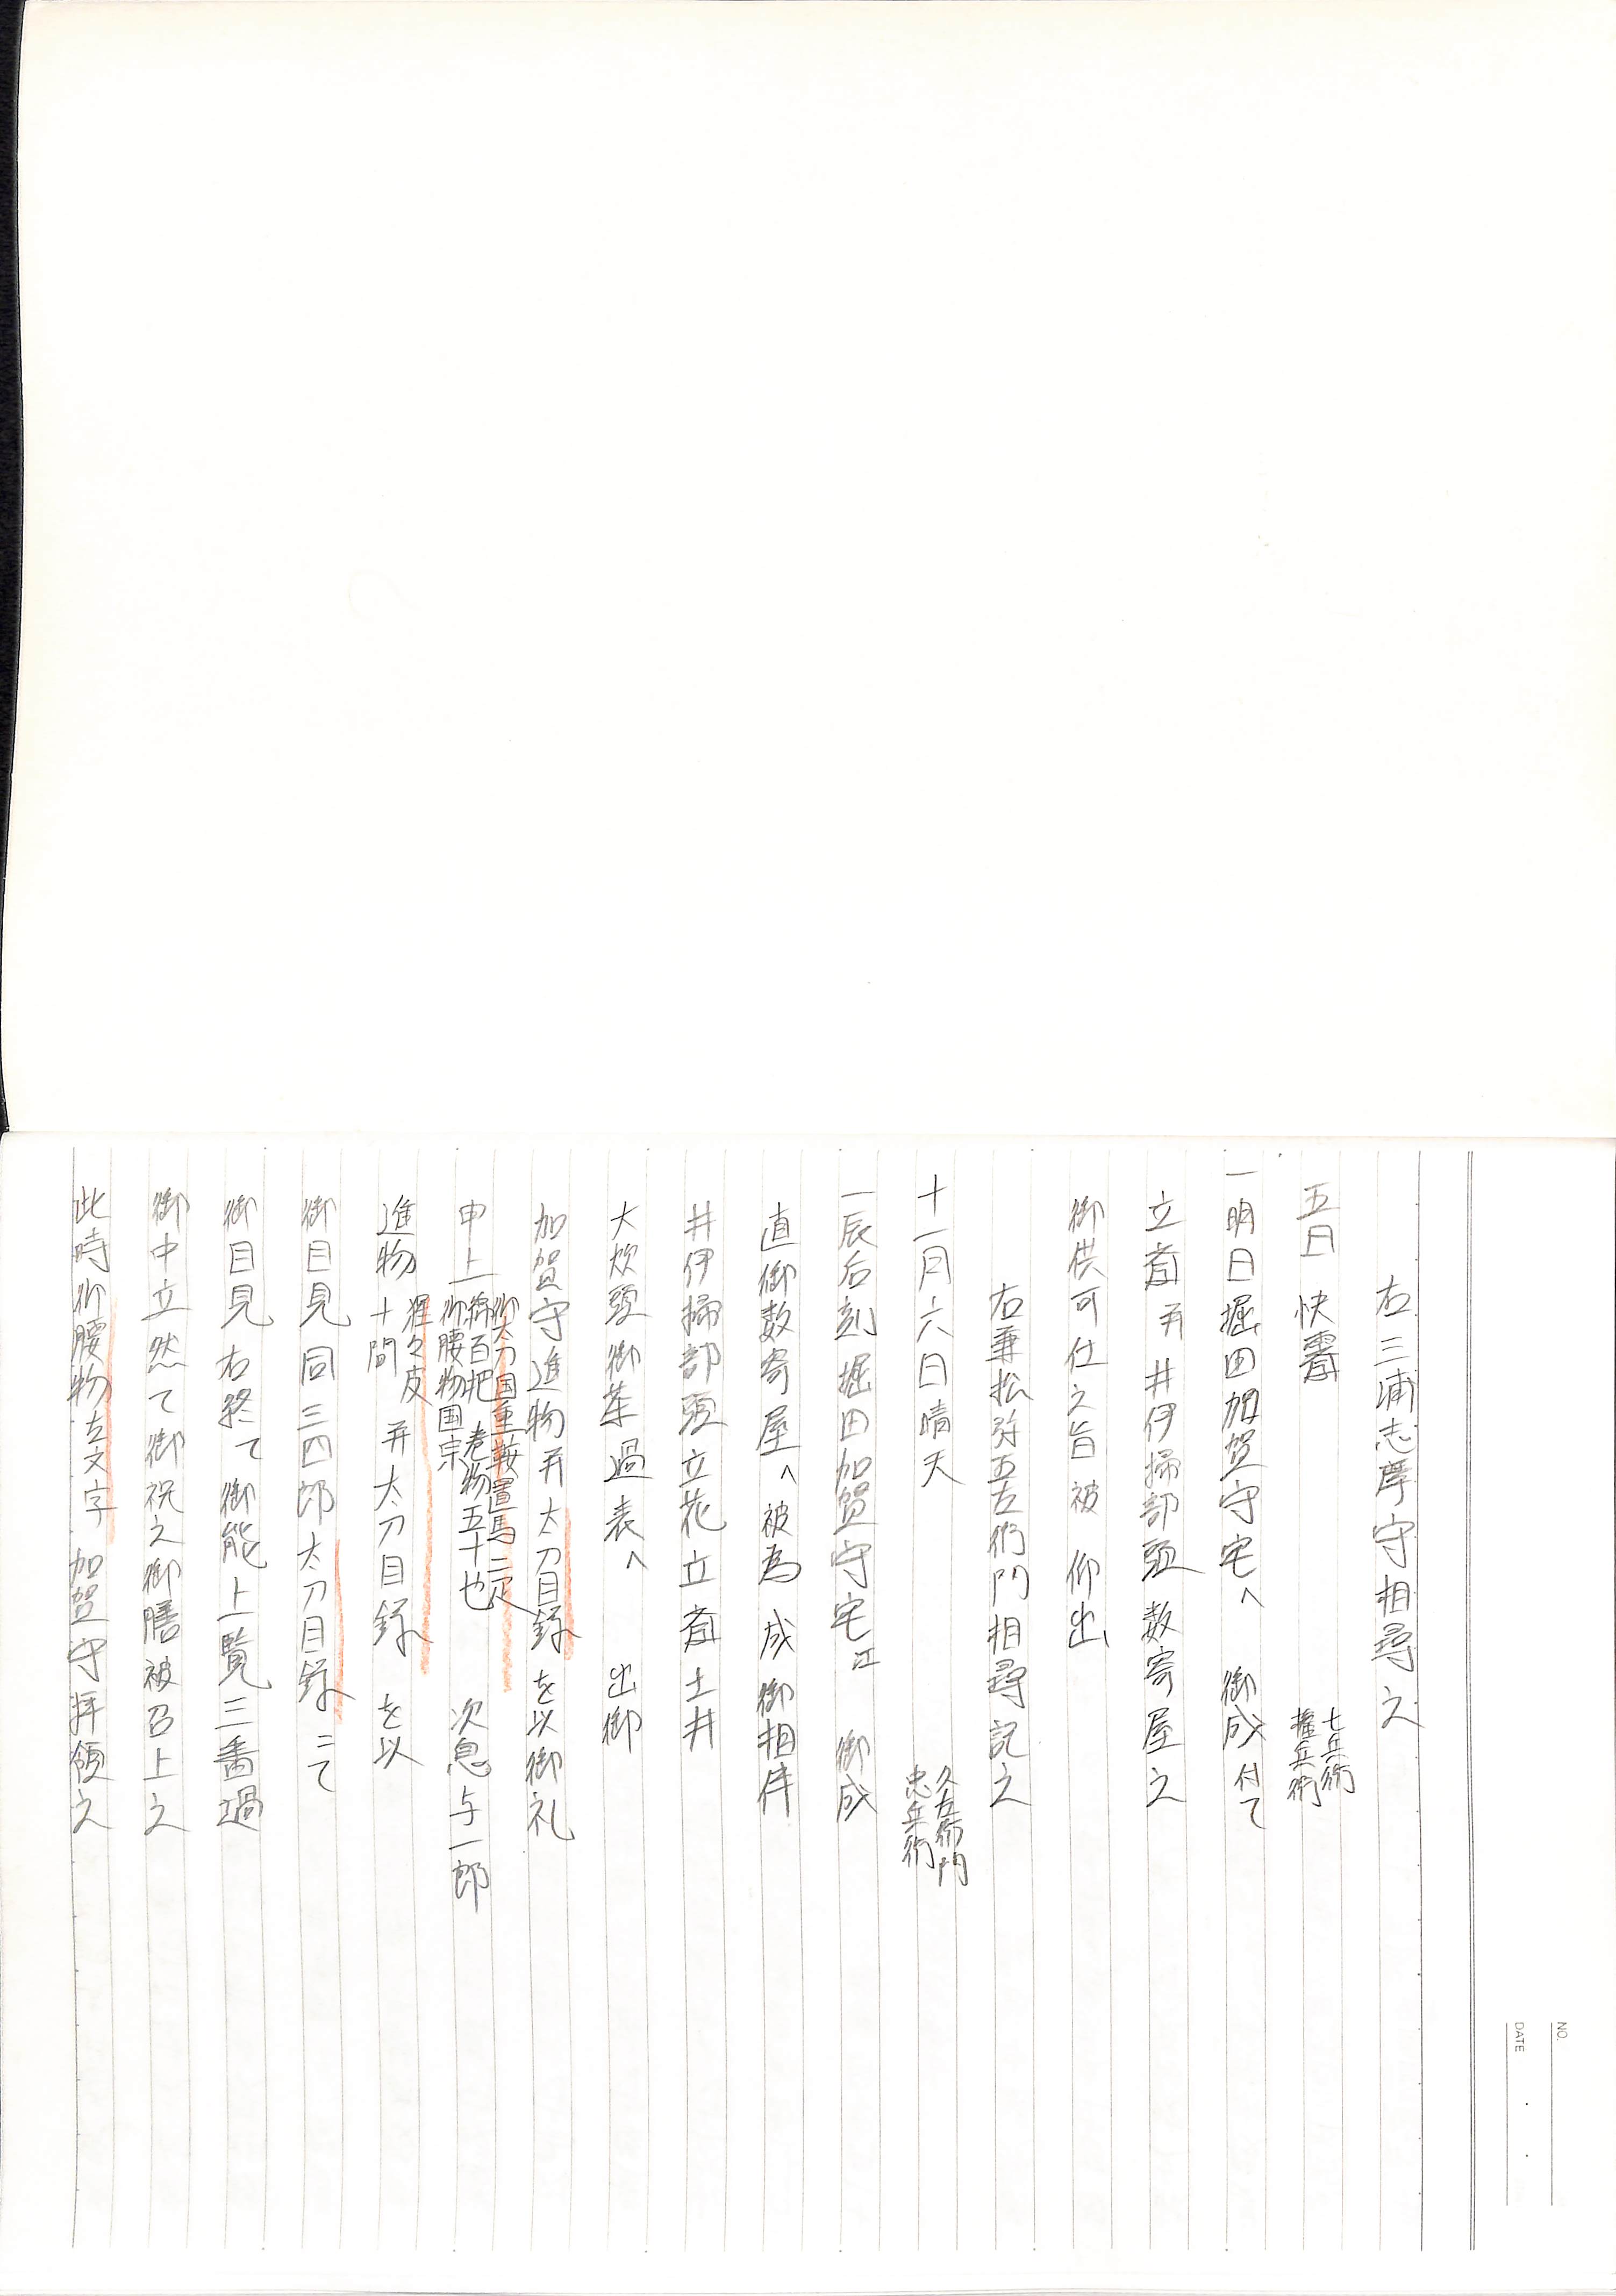 右三浦志摩守相尋之
五日 快霽 七兵衛
権兵衛
一明日堀田加賀守宅へ 御成付て
立斎并井伊掃部頭数寄屋之
御供可仕之旨被 仰出
右兼松弥五左衛門相尋記之
十一月六日晴天 久右衛門
忠兵衛
一辰后刻堀田加賀守宅江 御成
直御数寄屋へ被為 成御相伴
井伊掃部頭立花立斎土井
大炊頭御茶過表へ 出御
加賀守進物并太刀目録を以御礼
申上 御太刀国重鞍置馬二疋
綿百把 巻物五十也
御腰物国宗 次息与一郎
進物 猩々皮
十間 并太刀目録 を以
御目見同三四郎太刀目録ニて
御目見右終て御能上覧三番過
御中立然て御祝之御膳被召上之
此時御腰物左文字 加賀守拝領之
NO.
DATE